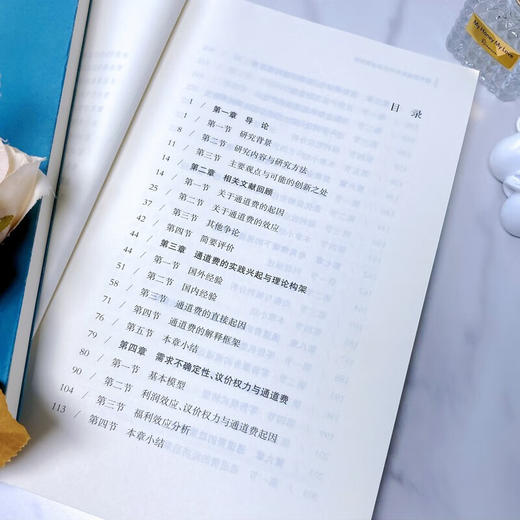 目 录
1 / 第一章 导 论
1 / 第一节 研究背景
8 / 第二节 研究内容与研究方法
11 / 第三节 主要观点与可能的创新之处
14 / 第二章 相关文献回顾
14 / 第一节 关于通道费的起因
25 / 第二节 关于通道费的效应
37 / 第三节 其他争论
42 / 第四节 简要评价
44 / 第三章 通道费的实践兴起与理论构架
44 / 第一节 国外经验
51 / 第二节 国内经验
58 / 第三节 通道费的直接起因
71 / 第四节 通道费的解释框架
76 / 第五节 本章小结
79 / 第四章 需求不确定性、议价权力与通道费
80 / 第一节 基本模型
90 / 第二节 利润效应、议价权力与通道费起因
104 / 第三节 福利效应分析
113 / 第四节 本章小结
My Honey,My Love